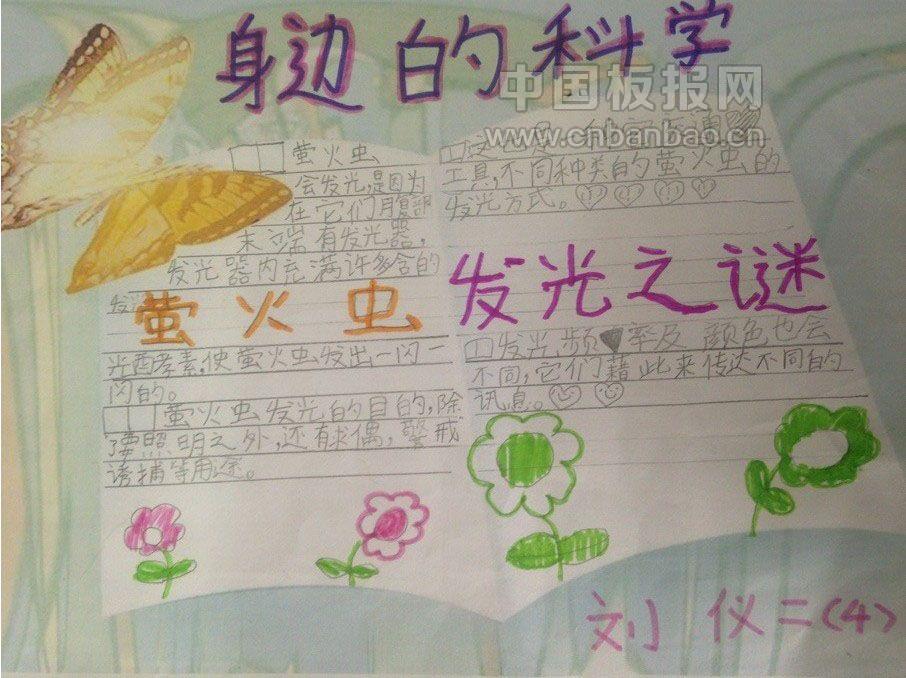 身边的科学
中国板报网
www.cnbanbao.cn
萤火虫
会发光,是因为
在它们腹部
末端有发光器,
发光器内充满许多含的
发
光酉孝素,使萤火虫发出一闪一
闪的。
萤火虫发光的目的,除
了要照明之外,还有求偶,警戒
诱捕等用途。
工具,不同种类的萤火虫的
发光方式。
萤火虫 发光之谜
发光频率及颜色也会
不同,它们藉此来传达不同的
讯息。
刘仪二(4)